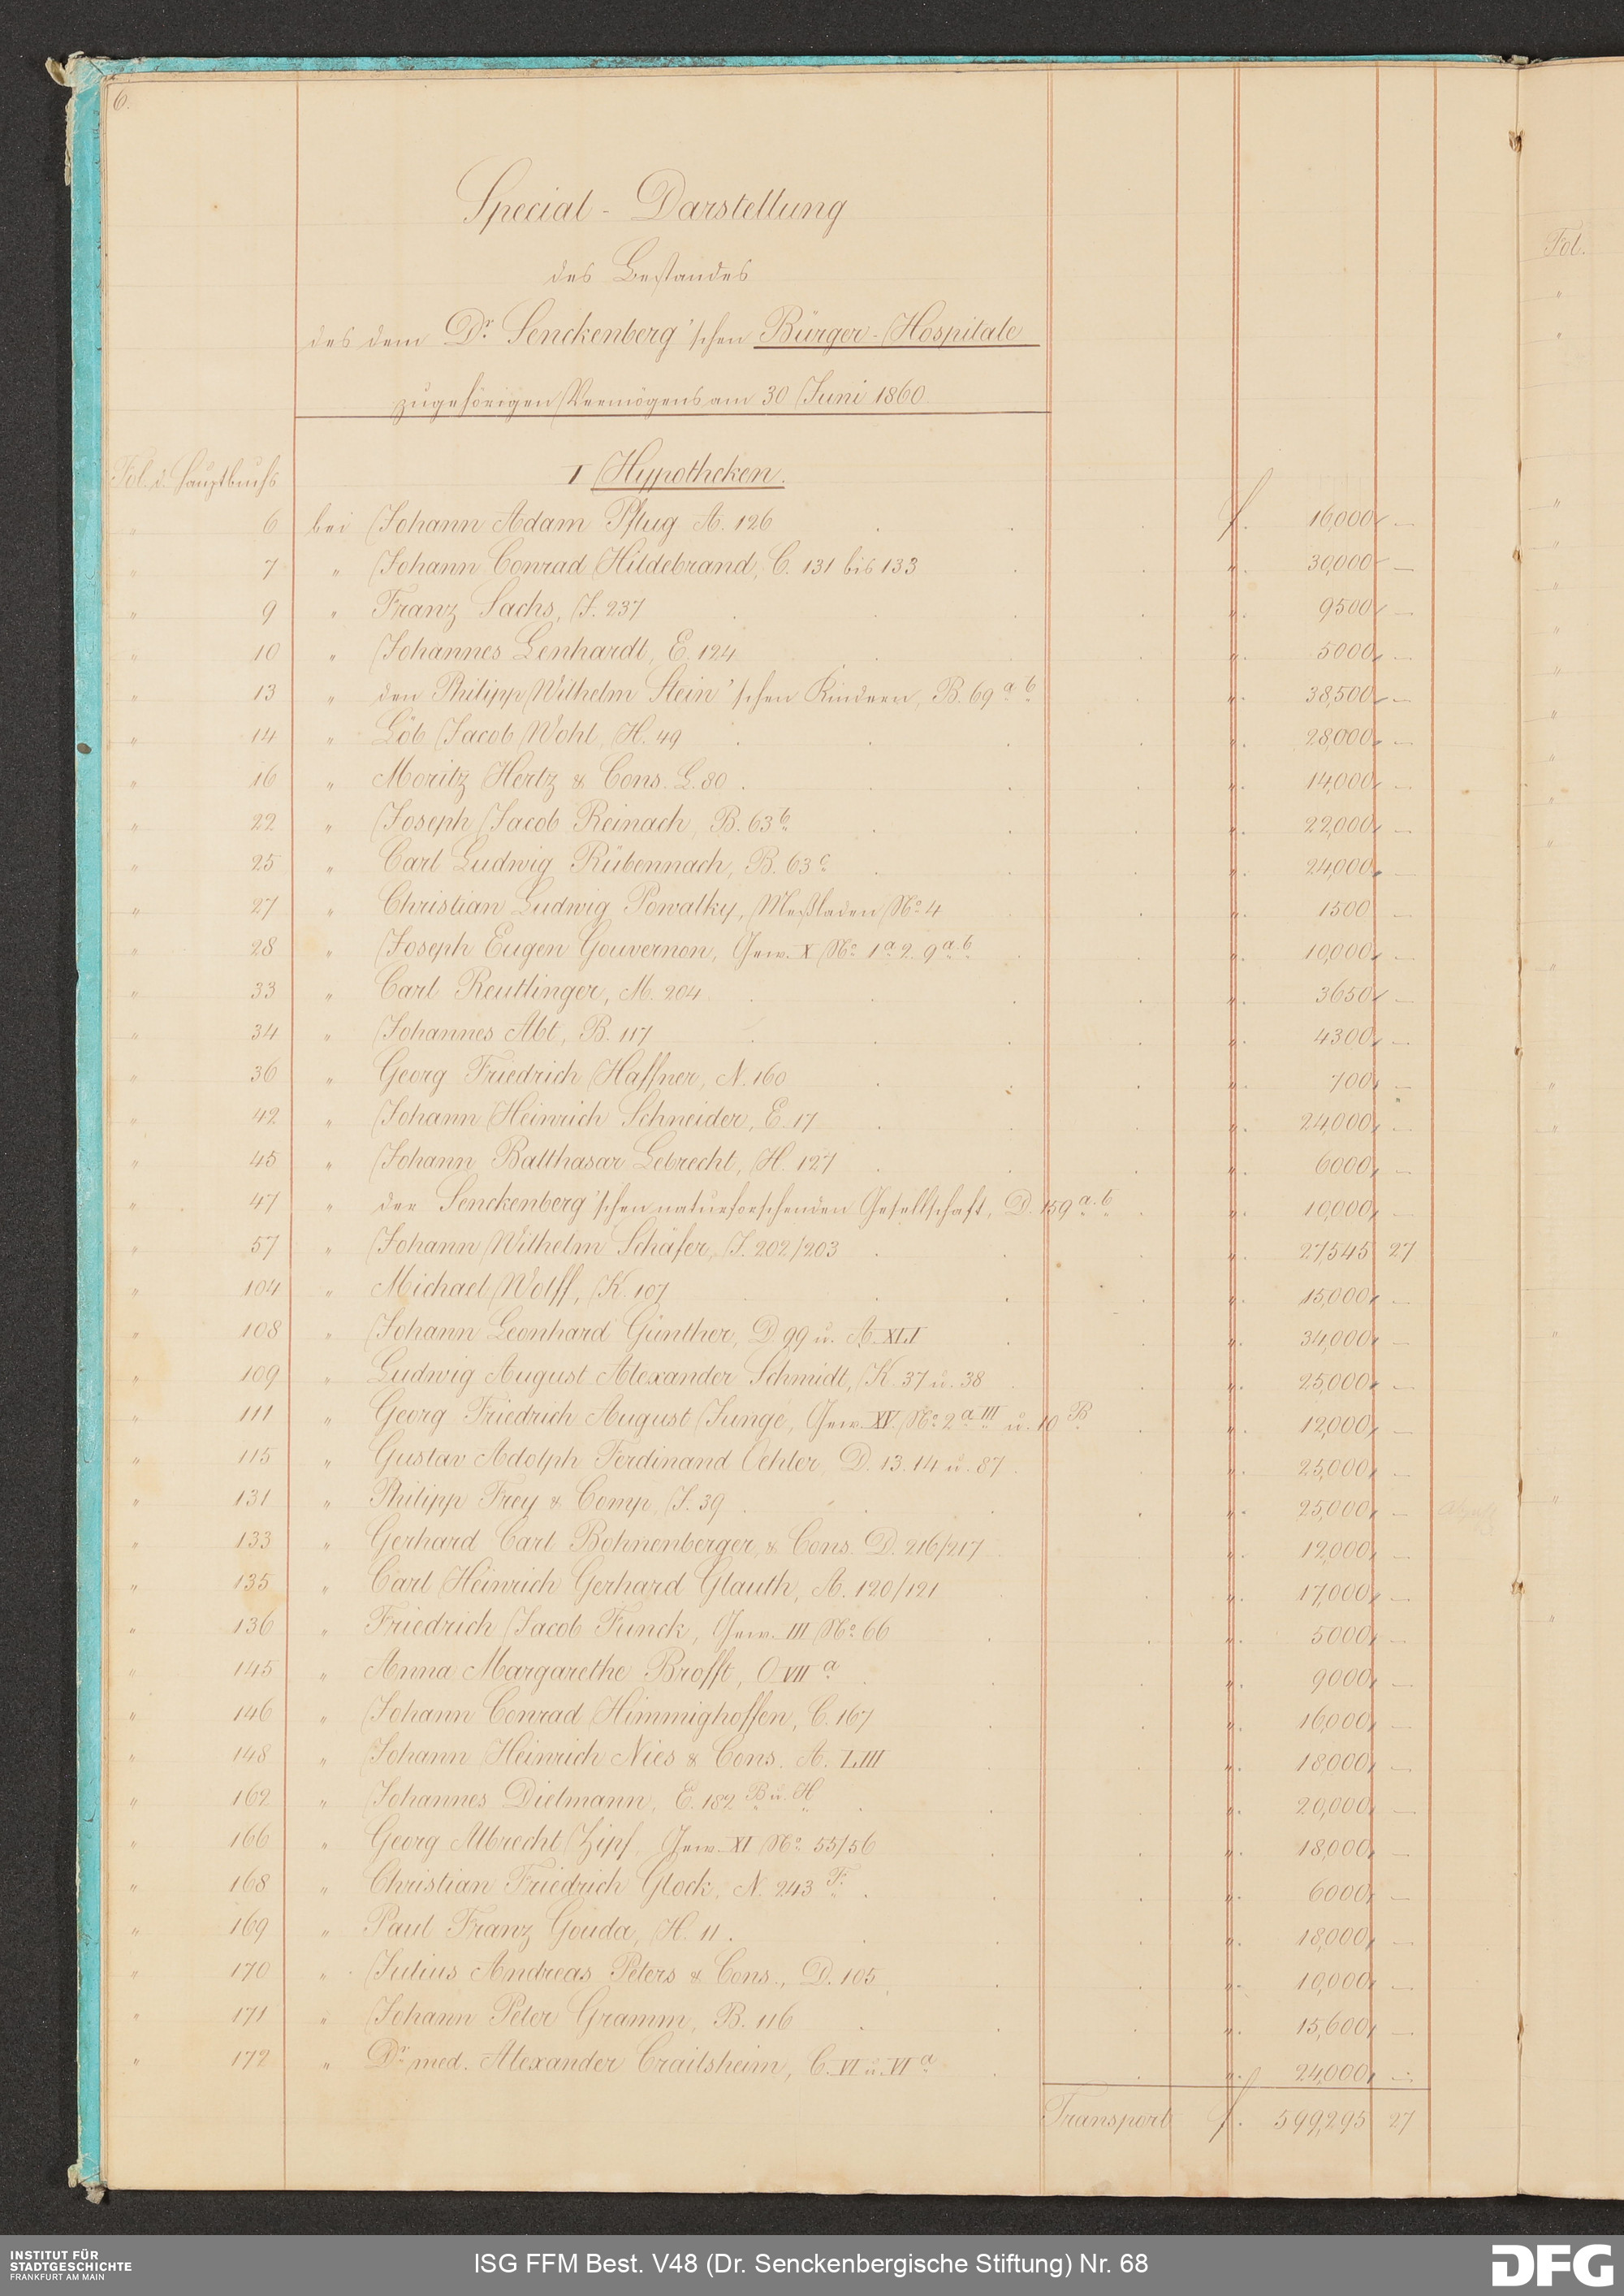 6.
Special-Darstellung
des Bestandes
des dem Dr. Senckenberg'schen Bürger-Hospitale
zugehörigen Vermögens am 30 Juni 1860
Fol. d. Hauptbuchs I Hypotheken.
" 6 bei Johann Adam Pflug A. 126 f. 16,000 —
" 7 " Johann Conrad Hildebrand, C. 131 bis 133 " 30,000 —
" 9 " Franz Sachs, J. 237 " 9500 —
" 10 " Johannes Lenhardt, E. 124 " 5000 —
" 13 " den Philipp Wilhelm Stein'schen Kindern, B. 69 a.b. " 38,500 —
" 14 " Löb Jacob Wohl, H. 49 " 28,000 —
" 16 " Moritz Hertz & Cons. L. 80 " 14,000 —
" 22 " Joseph Jacob Reinach, B. 63 b. " 22,000 —
" 25 " Carl Ludwig Rübennach, B. 63 c. " 24,000 —
" 27 " Christian Ludwig Powalky, Meßladen No. 4 " 1500 —
" 28 " Joseph Eugen Gouvernon, Gew. X No. 1 a. 2. 9 a.b. " 10,000 —
" 33 " Carl Reutlinger, M. 204 " 3650 —
" 34 " Johannes Abt, B. 117 " 4300 —
" 36 " Georg Friedrich Haffner, N. 160 " 700 —
" 42 " Johann Heinrich Schneider, E. 17 " 24,000 —
" 45 " Johann Balthasar Lebrecht, H. 127 " 6000 —
" 47 " der Senckenberg'schen naturforschenden Gesellschaft, D. 159 a.b. " 10,000 —
" 57 " Johann Wilhelm Schäfer, J. 202/203 " 27,545 27
" 104 " Michael Wolff, K. 107 " 15,000 —
" 108 " Johann Leonhard Günther, D 99 u. A. XLI " 34,000 —
" 109 " Ludwig August Alexander Schmidt, K. 37 u. 38 " 25,000 —
" 111 " Georg Friedrich August Junge, Gew. XV. No. 2 a III u. 10 B " 12,000 —
" 115 " Gustav Adolph Ferdinand Oehler, D. 13. 14 u. 87 " 25,000 —
" 131 " Philipp Frey & Comp. J. 39 " 25,000 —
" 133 " Gerhard Carl Bohnenberger & Cons. D. 216/217 " 12,000 —
" 135 " Carl Heinrich Gerhard Glauth, A. 120/121 " 17,000 —
" 136 " Friedrich Jacob Funck, Gew. III No. 66 " 5000 —
" 145 " Anna Margarethe Brofft, O. VII a " 9000 —
" 146 " Johann Conrad Himmighoffen, C. 167 " 16,000 —
" 148 " Johann Heinrich Nies & Cons. A. LIII " 18,000 —
" 162 " Johannes Dielmann, E. 182 B u. H " 20,000 —
" 166 " Georg Albrecht Zipf, Gew. XI No. 55/56 " 18,000 —
" 168 " Christian Friedrich Glock, N. 243 F. " 6000 —
" 169 " Paul Franz Gouda, H. 11 " 18,000 —
" 170 " Julius Andreas Peters & Cons., D. 105 " 10,000 —
" 171 " Johann Peter Gramm, B. 116 " 15,600 —
" 172 " Dr. med. Alexander Crailsheim, C. VI u. VI a. " 24,000 —
Transport f. 599,295 27
Fol.
INSTITUT FÜR
STADTGESCHICHTE
FRANKFURT AM MAIN
ISG FFM Best. V48 (Dr. Senckenbergische Stiftung) Nr. 68
DFG